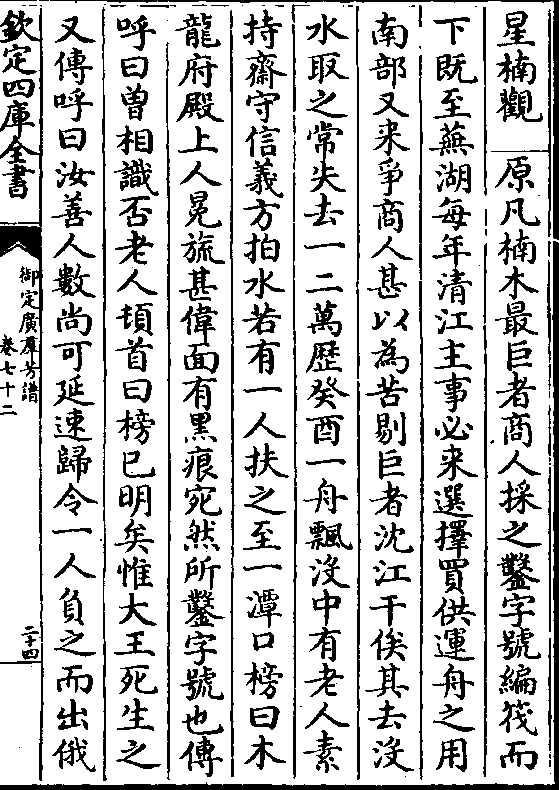 星楠觀　原凡楠木最巨者商人採之鑿字號編筏而
下既至蕪湖每年清江主事必来選擇買供運舟之用
南部又来爭商人甚以為苦剔巨者沈江干俟其去沒
水取之常失去一二萬歴癸酉一舟飄沒中有老人素
持齋守信義方拍水若有一人扶之至一潭口榜曰木
龍府殿上人冕旒甚偉面有黑痕宛然所鑿字號也傳
呼曰曾相識否老人頓首曰榜已明矣惟大王死生之
又傳呼曰汝善人數尚可延速歸令一人負之而出俄
欽定四庫全書
御定廣羣芳譜
卷七十二
二十四